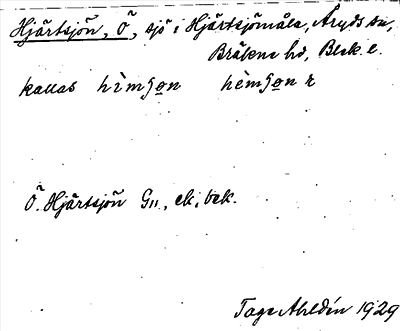 Hjärtsjön, Ö, sjö i Hjärtsjömåla, Åryds sn,
Bräkne hd, Blek. l.
kallas hìmʃọn hèmʃọn r
Ö. Hjärtsjön G11, ek, bek.
Tage Ahldén 1929